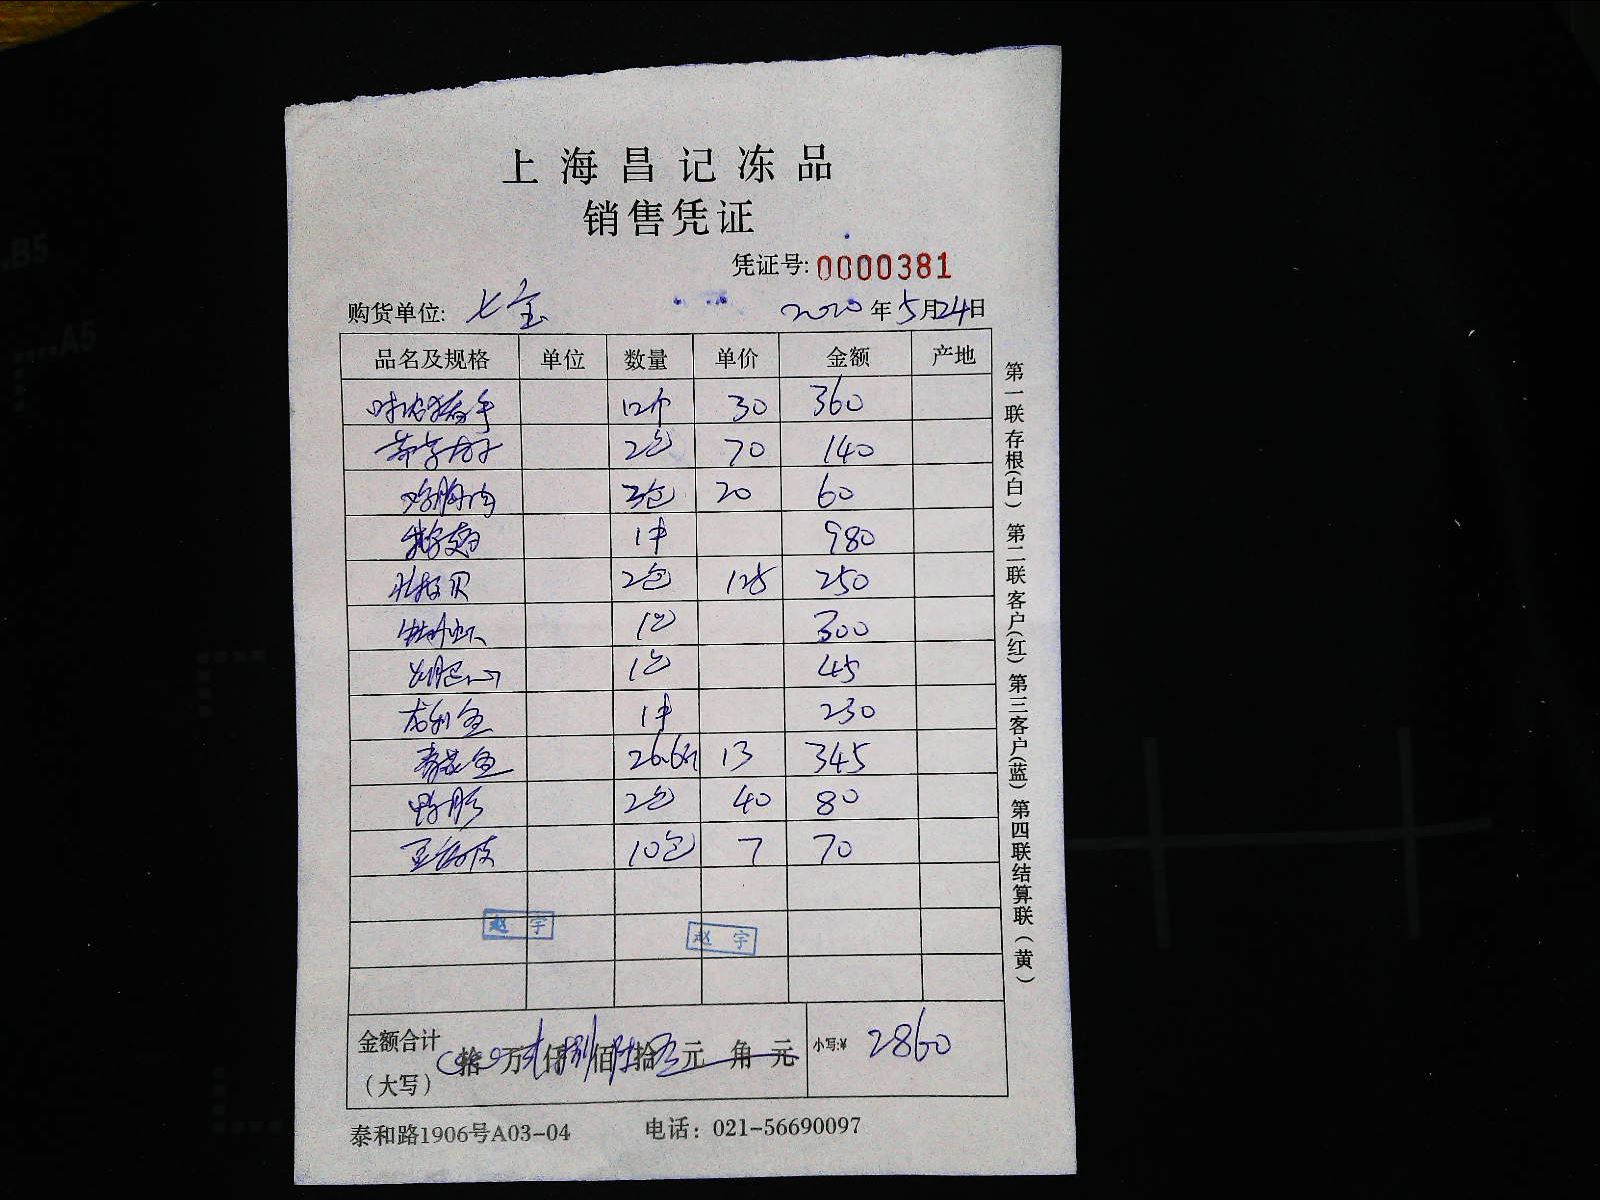 上海昌记冻品
销售凭证
凭证号:0000381
购货单位: 七宝 2020年5月24日
品名及规格 单位 数量 单价 金额 产地
12个 30 360
2包 70 140
鸡胸肉 3包 20 60
1件 980
北极贝 2包 125 250
1包 300
1包 45
龙利鱼 1件 230
青花鱼 26.6斤 13 345
鸭肫 2包 40 80
豆腐皮 10包 7 70
赵宇 赵宇
金额合计
(大写) 拾 万 贰仟捌佰陆拾 元 角 元 小写:¥ 2860
泰和路1906号A03-04 电话: 021-56690097
第一联存根(白) 第二联客户(红) 第三客户(蓝) 第四联结算联(黄)